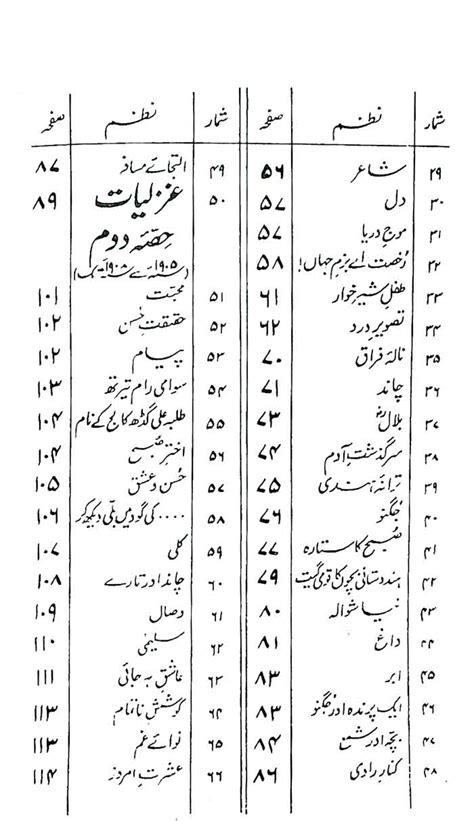 شمار نظم صفحہ
۲۹ شاعر ۵۶
۳۰ دل ۵۷
۳۱ موجِ دریا ۵۷
۳۲ رخصت اے بزمِ جہاں! ۵۸
۳۳ طفلِ شیر خوار ۶۱
۳۴ تصویرِ درد ۶۲
۳۵ نالۂ فراق ۷۰
۳۶ چاند ۷۱
۳۷ بلالؓ ۷۳
۳۸ سرگذشتِ آدم ۷۴
۳۹ ترانۂ ہندی ۷۵
۴۰ جگنو ۷۶
۴۱ صبح کا ستارہ ۷۷
۴۲ ہندوستانی بچوں کا قومی گیت ۷۹
۴۳ نیا شوالہ ۸۰
۴۴ داغ ۸۱
۴۵ ابر ۸۳
۴۶ ایک پرندہ اور جگنو ۸۳
۴۷ بچہ اور شمع ۸۴
۴۸ کنارِ راوی ۸۶
شمار نظم صفحہ
۴۹ التجائے مسافر ۸۷
۵۰ غزلیات ۸۹
حصّۂ دوم
(۱۹۰۵ سے ۱۹۰۸ تک)
۵۱ محبت ۱۰۱
۵۲ حقیقتِ حُسن ۱۰۲
۵۳ پیام ۱۰۲
۵۴ سوامی رام تیرتھ ۱۰۳
۵۵ طلبہ علی گڈھ کالج کے نام ۱۰۴
۵۶ اخترِ صبح ۱۰۴
۵۷ حُسن و عشق ۱۰۵
۵۸ .... کی گود میں بلّی دیکھ کر ۱۰۶
۵۹ کلی ۱۰۷
۶۰ چاند اور تارے ۱۰۸
۶۱ وصال ۱۰۹
۶۲ سلیمیٰ ۱۱۰
۶۳ عاشقِ ہرجائی ۱۱۱
۶۴ کوششِ ناتمام ۱۱۳
۶۵ نوائے غم ۱۱۳
۶۶ عشرتِ امروز ۱۱۴